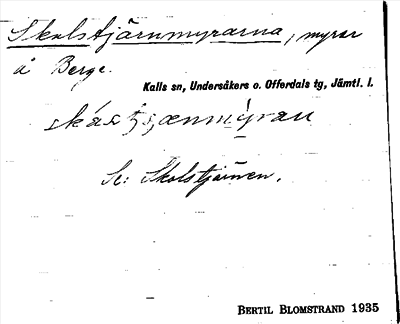 Skolstjärnmyrarna, myrar
å Berge.
Kalls sn, Undersåkers o. Offerdals tg, Jämtl. l.
Se: Skolstjärnen.
BERTIL BLOMSTRAND 1935